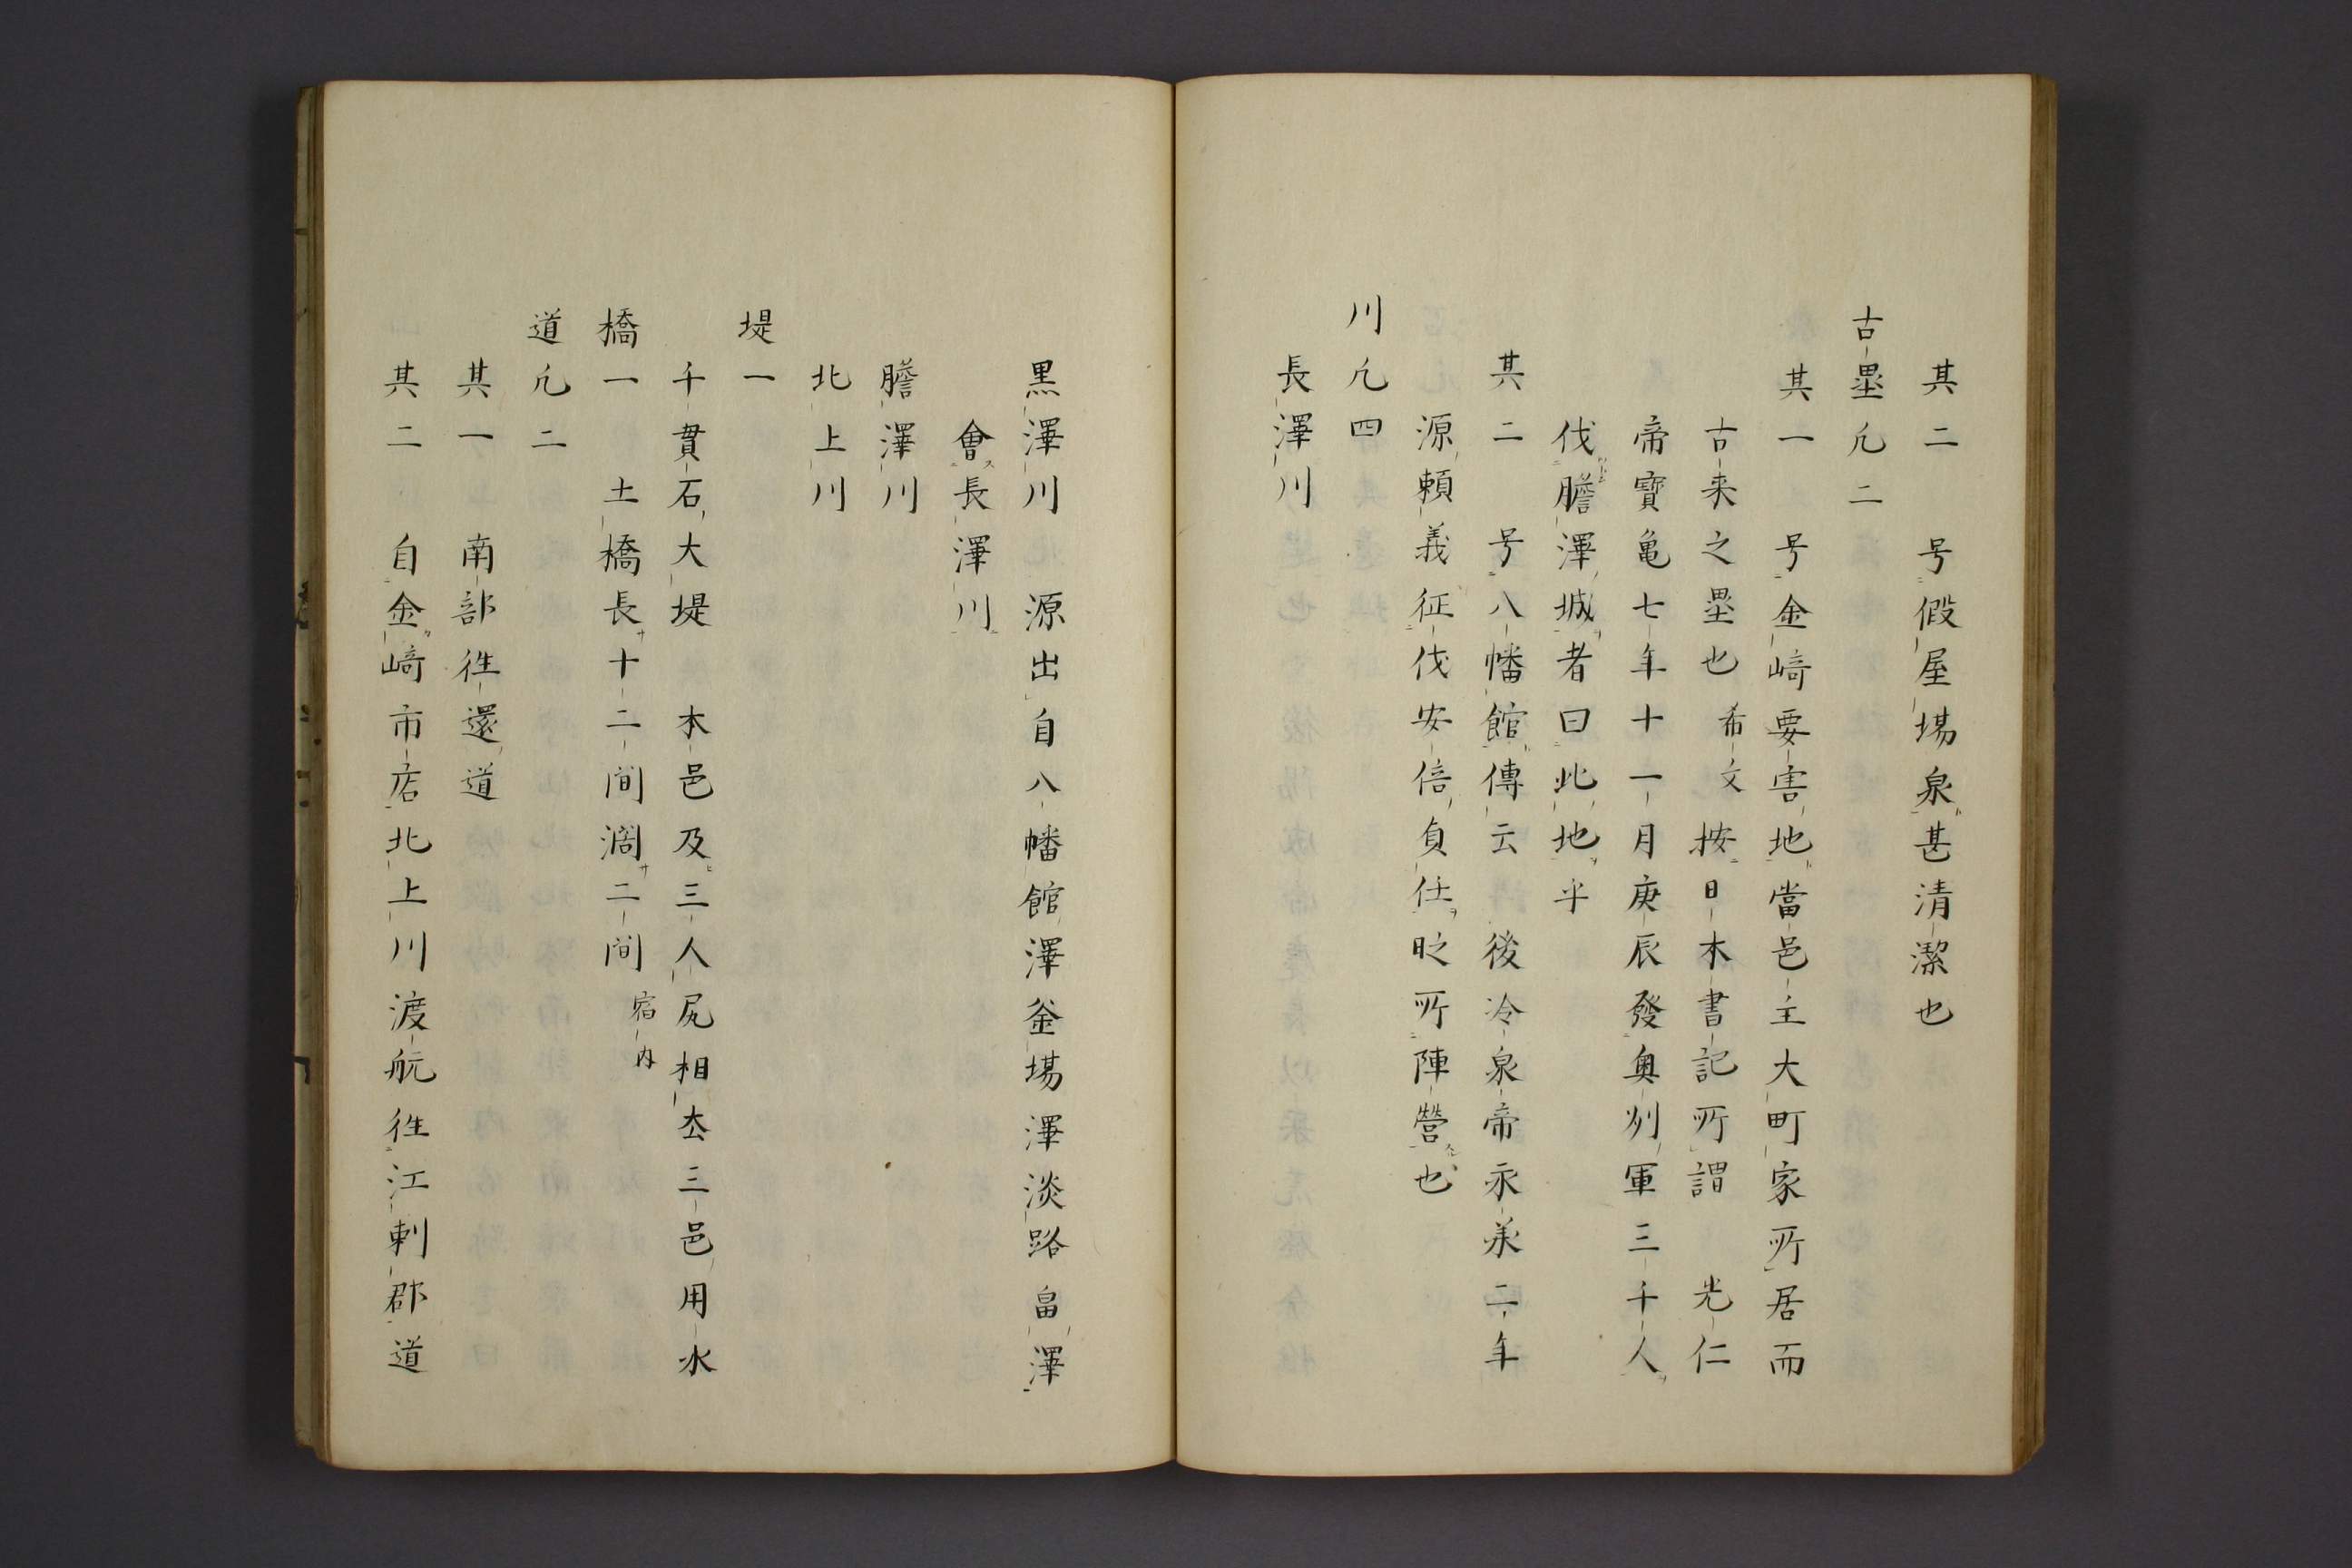 其二　号假屋場泉甚清潔也
古壘凢二
其一　号金﨑要害地當邑主大町家所居而
古来之壘也　希文　按日本書記所謂　光仁
帝寳亀七年十一月庚辰發奥州軍三千人
伐膽澤城者曰此地乎
其二　号八幡館傳云　後冷泉帝永兼二年
源頼義征伐安倍貞任时所陣營也
川凢四
長澤川
黒澤川　源出自八幡館澤釜場澤淡路畠澤
會長澤川
膽澤川
北上川
堤一
千貫石大堤　本邑及三人尻相去三邑用水
橋一　土橋長十二间濶二间　宿内
道凢二
其一　南部徃還道
其二　自金﨑市店北上川渡航徃江刺郡道